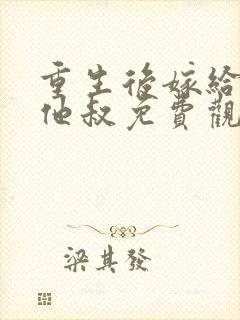 重生後嫁給
他叔免費觀
梁其發